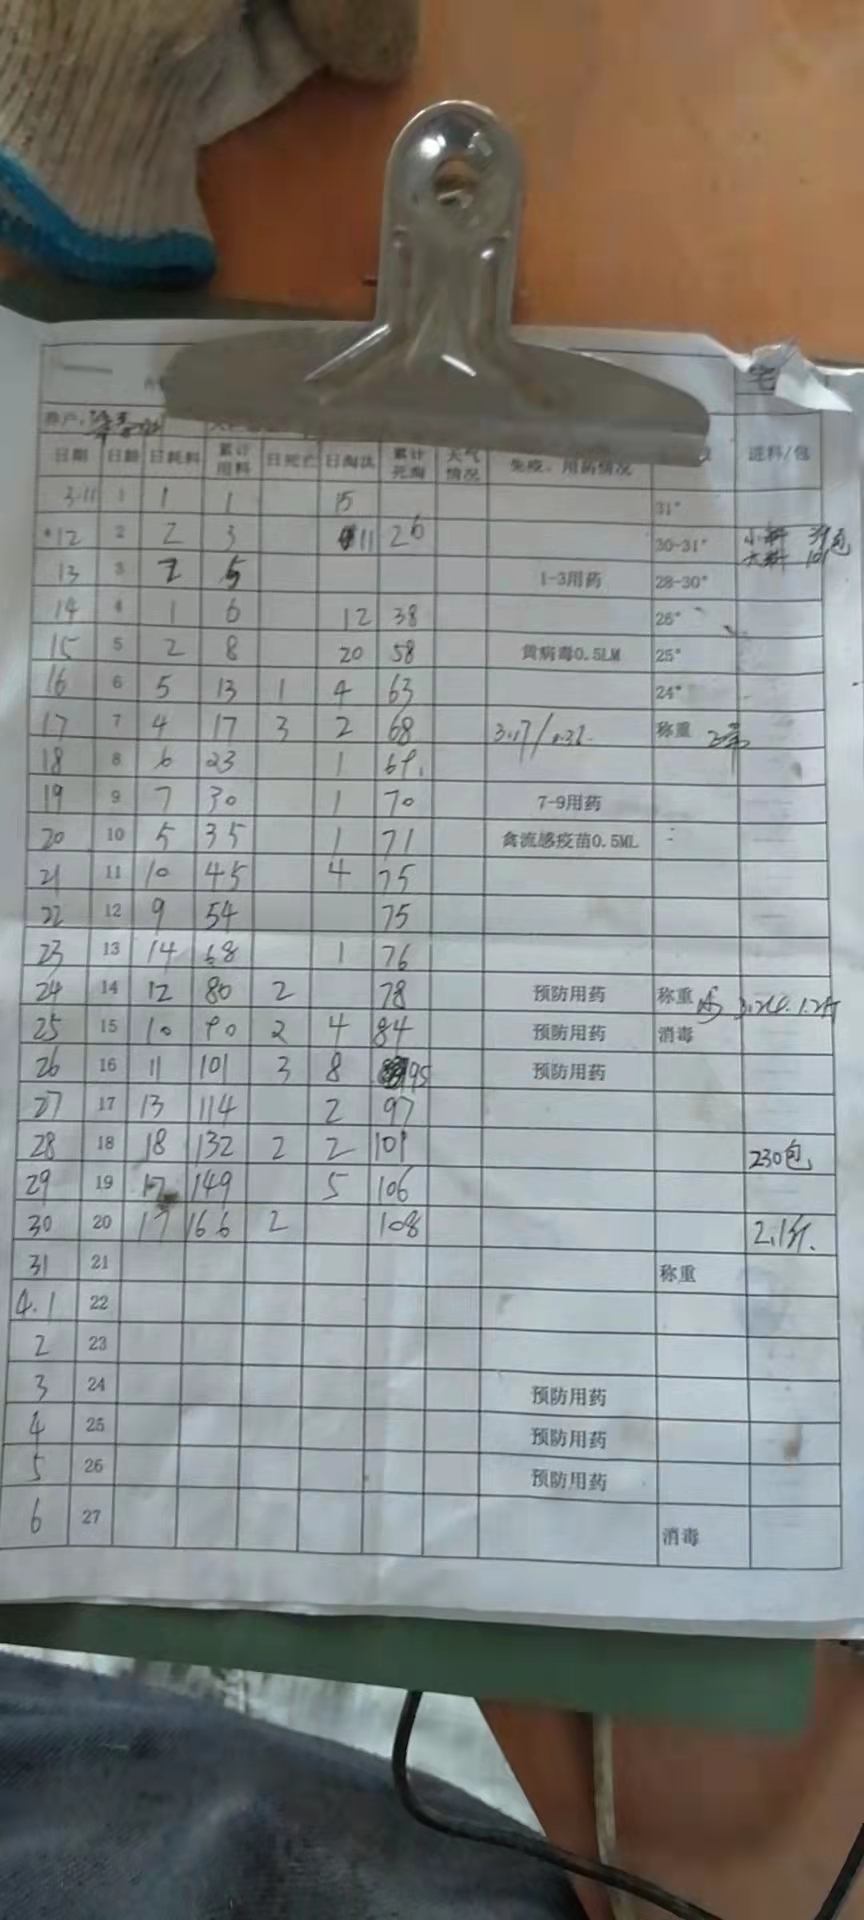 宅
养户:
日期 日龄 日耗料 累计用料 日死亡 日淘汰 累计死淘 天气情况 免疫、用药情况 进料/包
3.11 1 1 1 15 31°
12 2 2 3 11 26 30-31° 小料 39包
大料 101
13 3 2 5 1-3用药 28-30°
14 4 1 6 12 38 26°
15 5 2 8 20 58 黄病毒0.5LM 25°
16 6 5 13 1 4 63 24°
17 7 4 17 3 2 68 称重
18 8 6 23 1 69
19 9 7 30 1 70 7-9用药
20 10 5 35 1 71 禽流感疫苗0.5ML
21 11 10 45 4 75
22 12 9 54 75
23 13 14 68 1 76
24 14 12 80 2 78 预防用药 称重
25 15 10 90 2 4 84 预防用药 消毒
26 16 11 101 3 8 95 预防用药
27 17 13 114 2 97
28 18 18 132 2 2 101 230包
29 19 17 149 5 106
30 20 17 166 2 108 2.1斤.
31 21 称重
4.1 22
2 23
3 24 预防用药
4 25 预防用药
5 26 预防用药
6 27 消毒